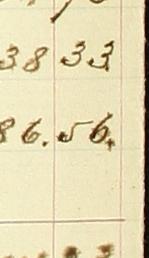 38 33
86.56.